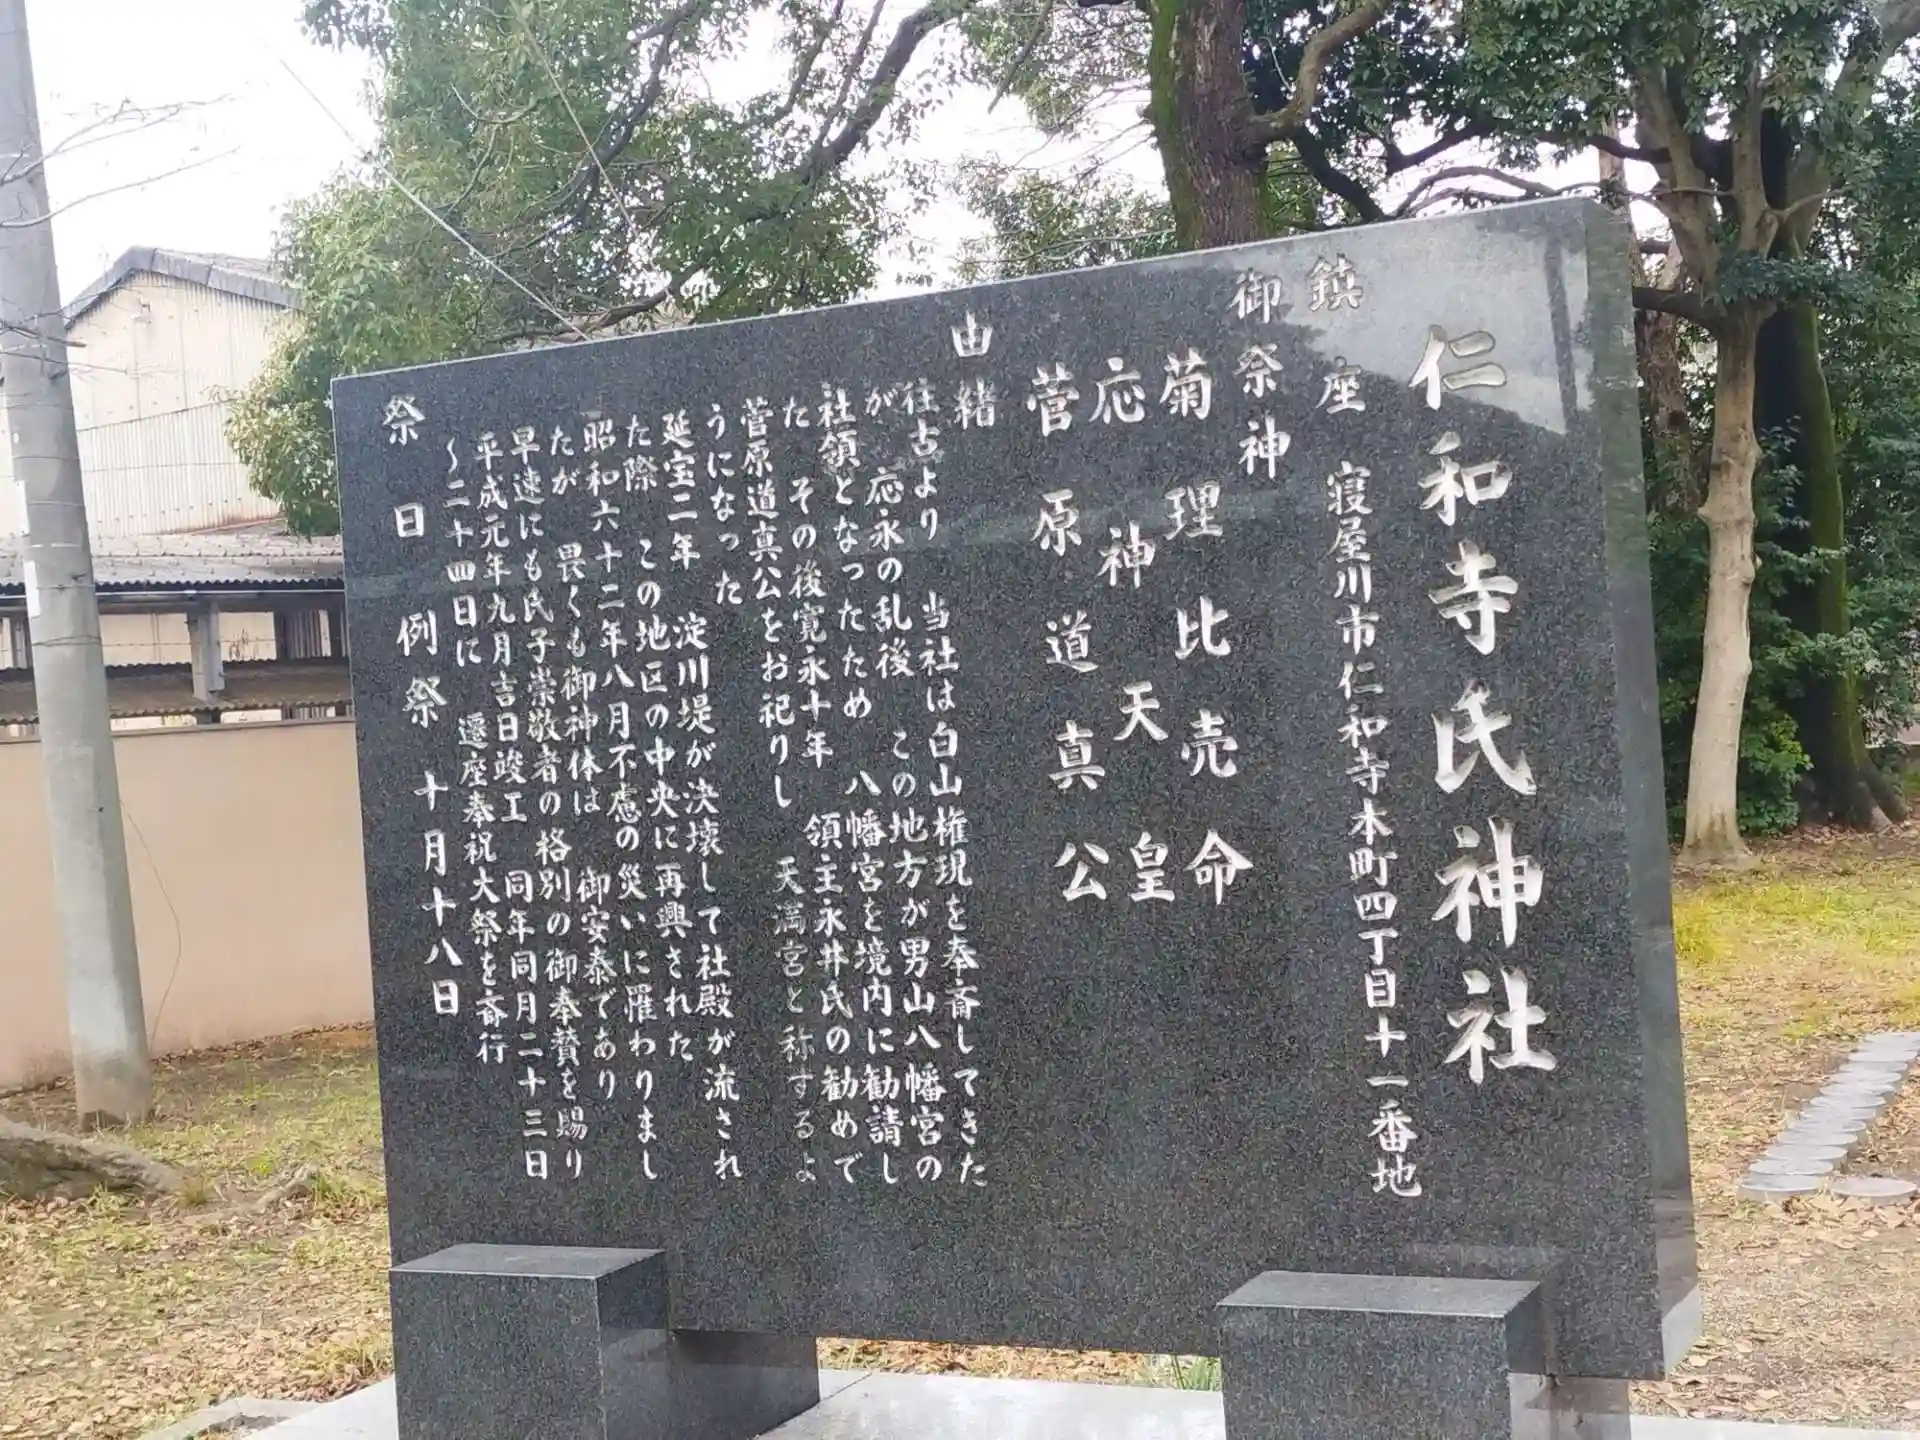 仁和寺氏神社
鎮座 寝屋川市仁和寺本町四丁目十一番地
御祭神
菊理比売命
応神天皇
菅原道真公
由緒
往古より 当社は白山権現を奉斎してきた
が 応永の乱後 この地方が男山八幡宮の
社領となったため 八幡宮を境内に勧請し
た その後寛永十年 領主永井氏の勧めで
菅原道真公をお祀りし 天満宮と称するよ
うになった
延宝二年 淀川堤が決壊して社殿が流され
た際 この地区の中央に再興された
昭和六十二年八月不慮の災いに罹わりまし
たが 畏くも御神体は 御安泰であり
早速にも氏子崇敬者の格別の御奉賛を賜り
平成元年九月吉日竣工 同年同月二十三日
〜二十四日に 遷座奉祝大祭を斎行
祭日 例祭 十月十八日